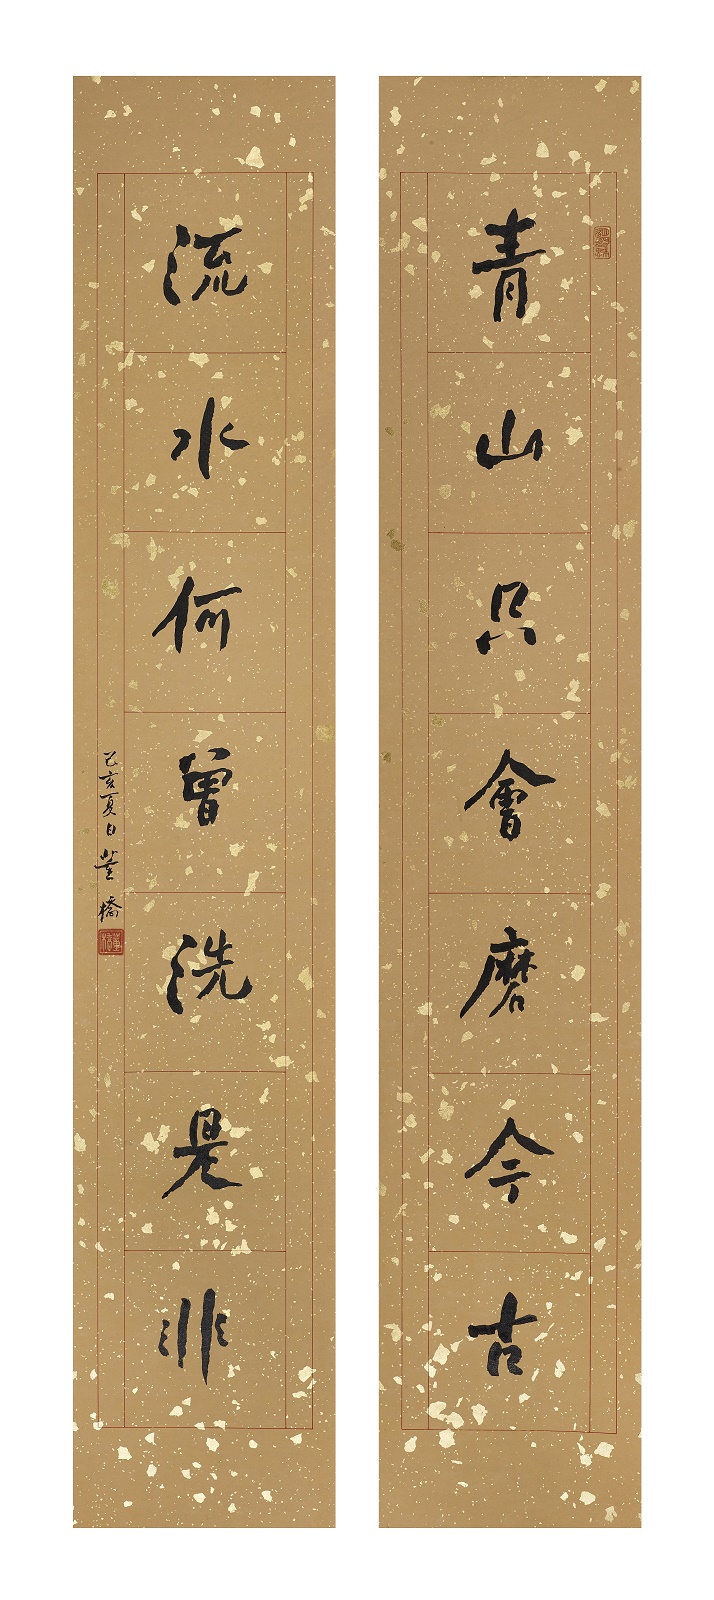 青山只會磨今古
流水何曾洗是非
己亥夏日 董橋